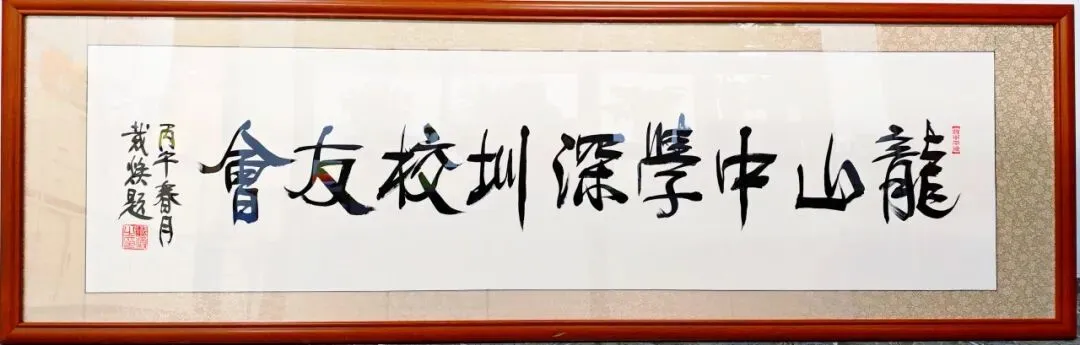 龍山中學深圳校友會
丙午春月
裁煥題